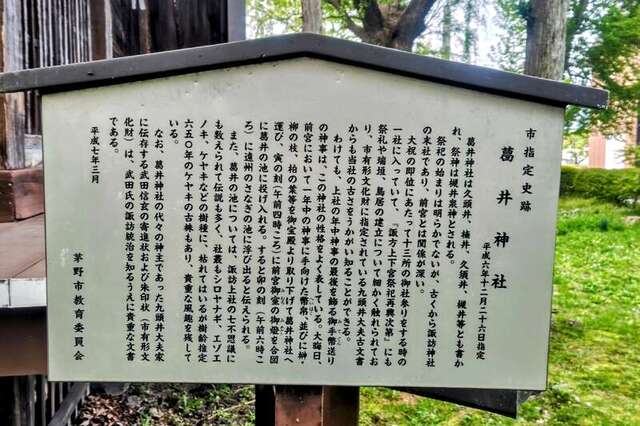 市指定史跡
葛井神社
平成六年十二月二十六日指定
葛井神社は久頭井、楠井、久須井、槻井等とも書か
れ、祭神は槻井泉神とされる。
祭祀の始まりは明らかでないが、古くから諏訪神社
の末社であり、前宮とは関係が深い。
大祝の即位にあたって十三所の御社参りをする時の
一社に入っていて、「諏方上下宮祭祀再興次第」にも
祭祀や瑞垣、鳥居の建立について細かく触れられてお
り、市有形文化財に指定されている九頭井大夫古文書
からも当社の古さをうかがい知ることができる。
わけても、上社の年中神事の最後を飾る御手幣送り
の神事は、この神社の性格をよく表している。大晦日、
前宮において一年中の神事に手向けた幣帛、並びに榊・
柳の枝・柏の葉等を御宝殿より取り下げて葛井神社へ
運び、寅の刻（午前四時ころ）に前宮御室の御燈を合図
に葛井の池に投げ入れる。すると卯の刻（午前六時こ
ろ）に遠州のさなぎの池に浮び出ると伝えられる。
また、葛井の池については、諏訪上社の七不思議に
も数えられて伝説も多く、社叢もシロヤナギ、エゾエ
ノキ、ケヤキなどの樹種に、枯れてはいるが樹齢推定
六五〇年のケヤキの古株もあり、貴重な風趣を残して
いる。
なお、葛井神社の代々の神主であった九頭井大夫家
に伝存する武田信玄の寄進状および朱印状（市有形文
化財）は、武田氏の諏訪統治を知るうえに貴重な文書
である。
平成七年三月
茅野市教育委員会